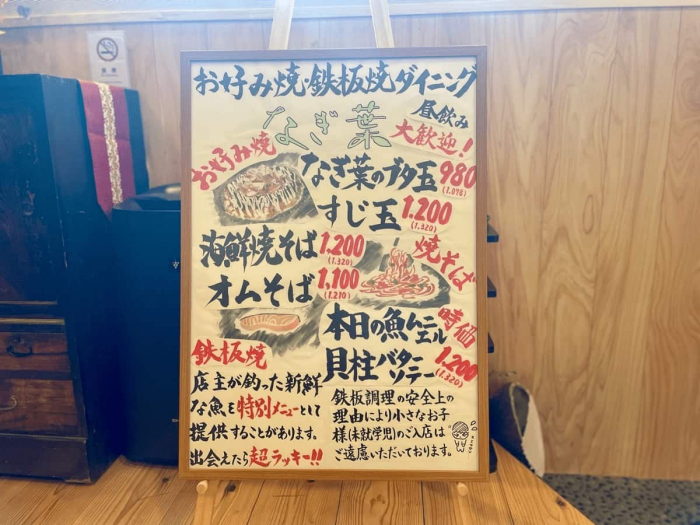 お好み焼・鉄板焼ダイニング
なぎ葉
昼飲み
大歓迎!
お好み焼
なぎ葉のブタ玉 980
(1,078)
すじ玉 1.200
(1.320)
海鮮焼そば 1.200
(1.320)
焼そば
オムそば 1,100
(1.210)
本日の魚ムニエル 時価
貝柱バターソテー 1.200
(1.320)
鉄板焼
店主が釣った新鮮
な魚を特別メニューとして
提供することがあります。
出会えたら超ラッキー!!
鉄板調理の安全上の
理由により小さなお子
様(未就学児)のご入店は
ご遠慮いただいております。